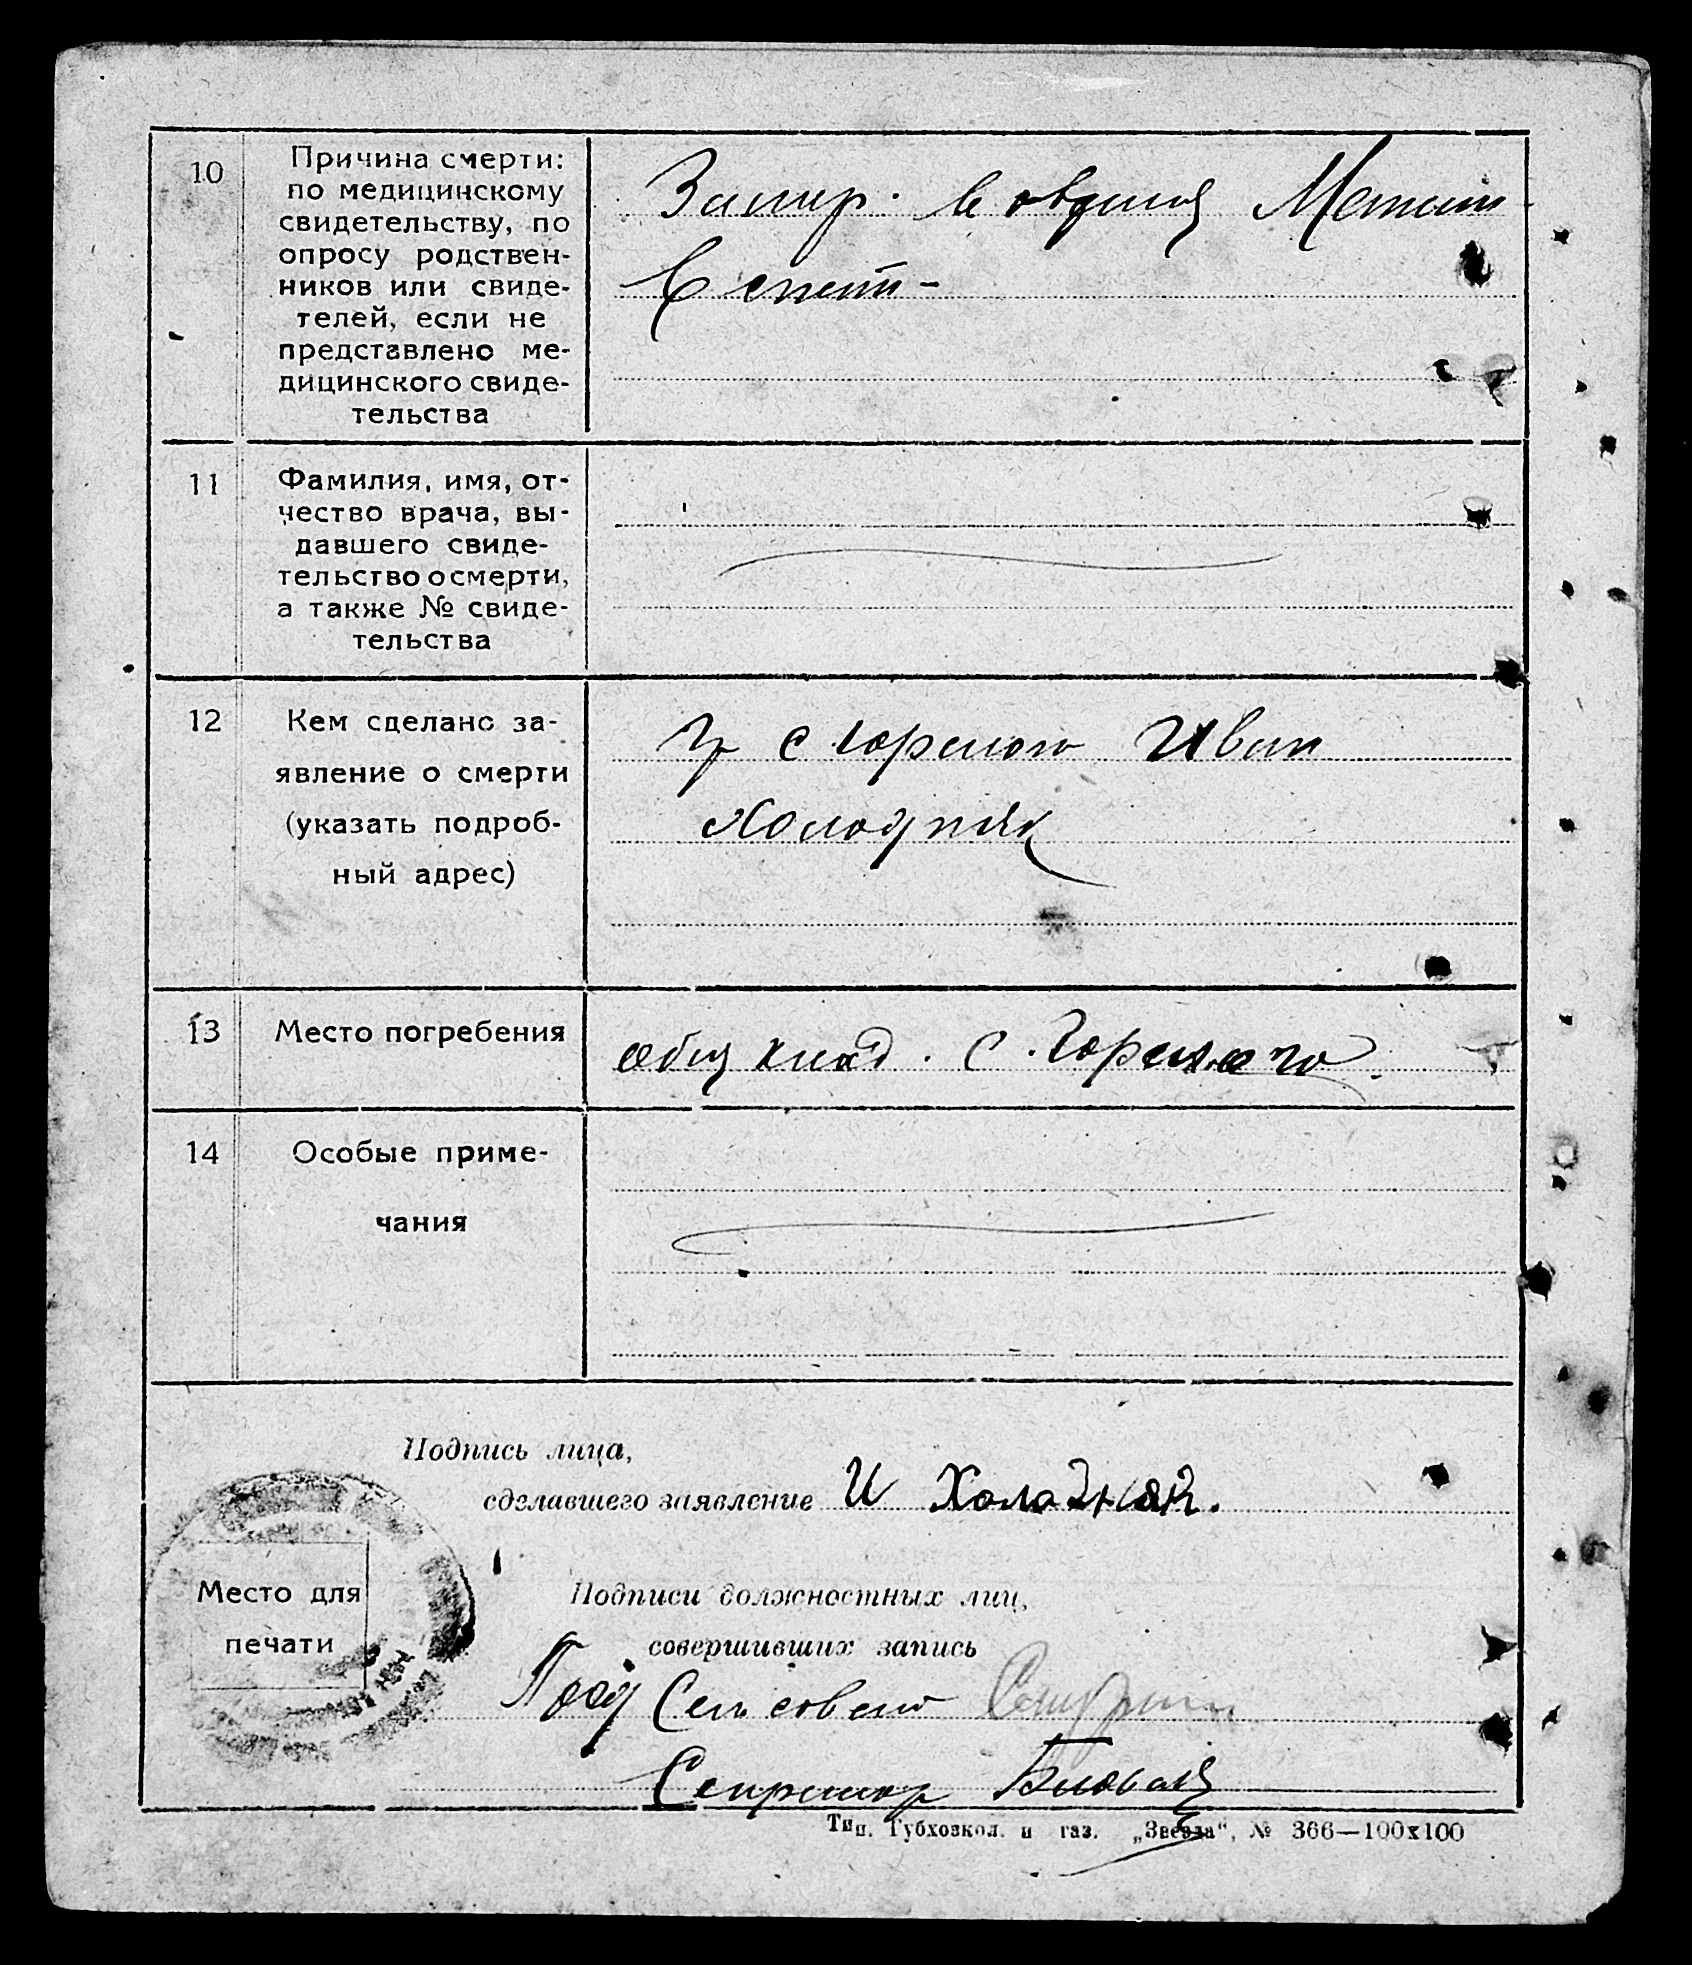 10
Причина смерти:
по медицинскому
свидетельству, по
опросу родствен-
ников или свиде-
телей, если не
представлено ме-
дицинского свиде-
тельства
Замер. в овраге
в степи-
11
Фамилия, имя, от-
чество врача, вы-
давшего свиде-
тельство о смерти,
а также № свиде-
тельства
12
Кем сделано за-
явление о смерти
(указать подроб-
ный адрес)
гр с Горского Иван
Холодняк
13
Место погребения
общ клад. с. Горского
14
Особые приме-
чания
Подпись лица,
сделавшего заявление И Холодняк.
Место для
печати
Подписи должностных лиц,
совершивших запись
Пред Сельсовета
Секретар
Тип. Губхозкол. и газ. „Звезда“, № 366—100х100